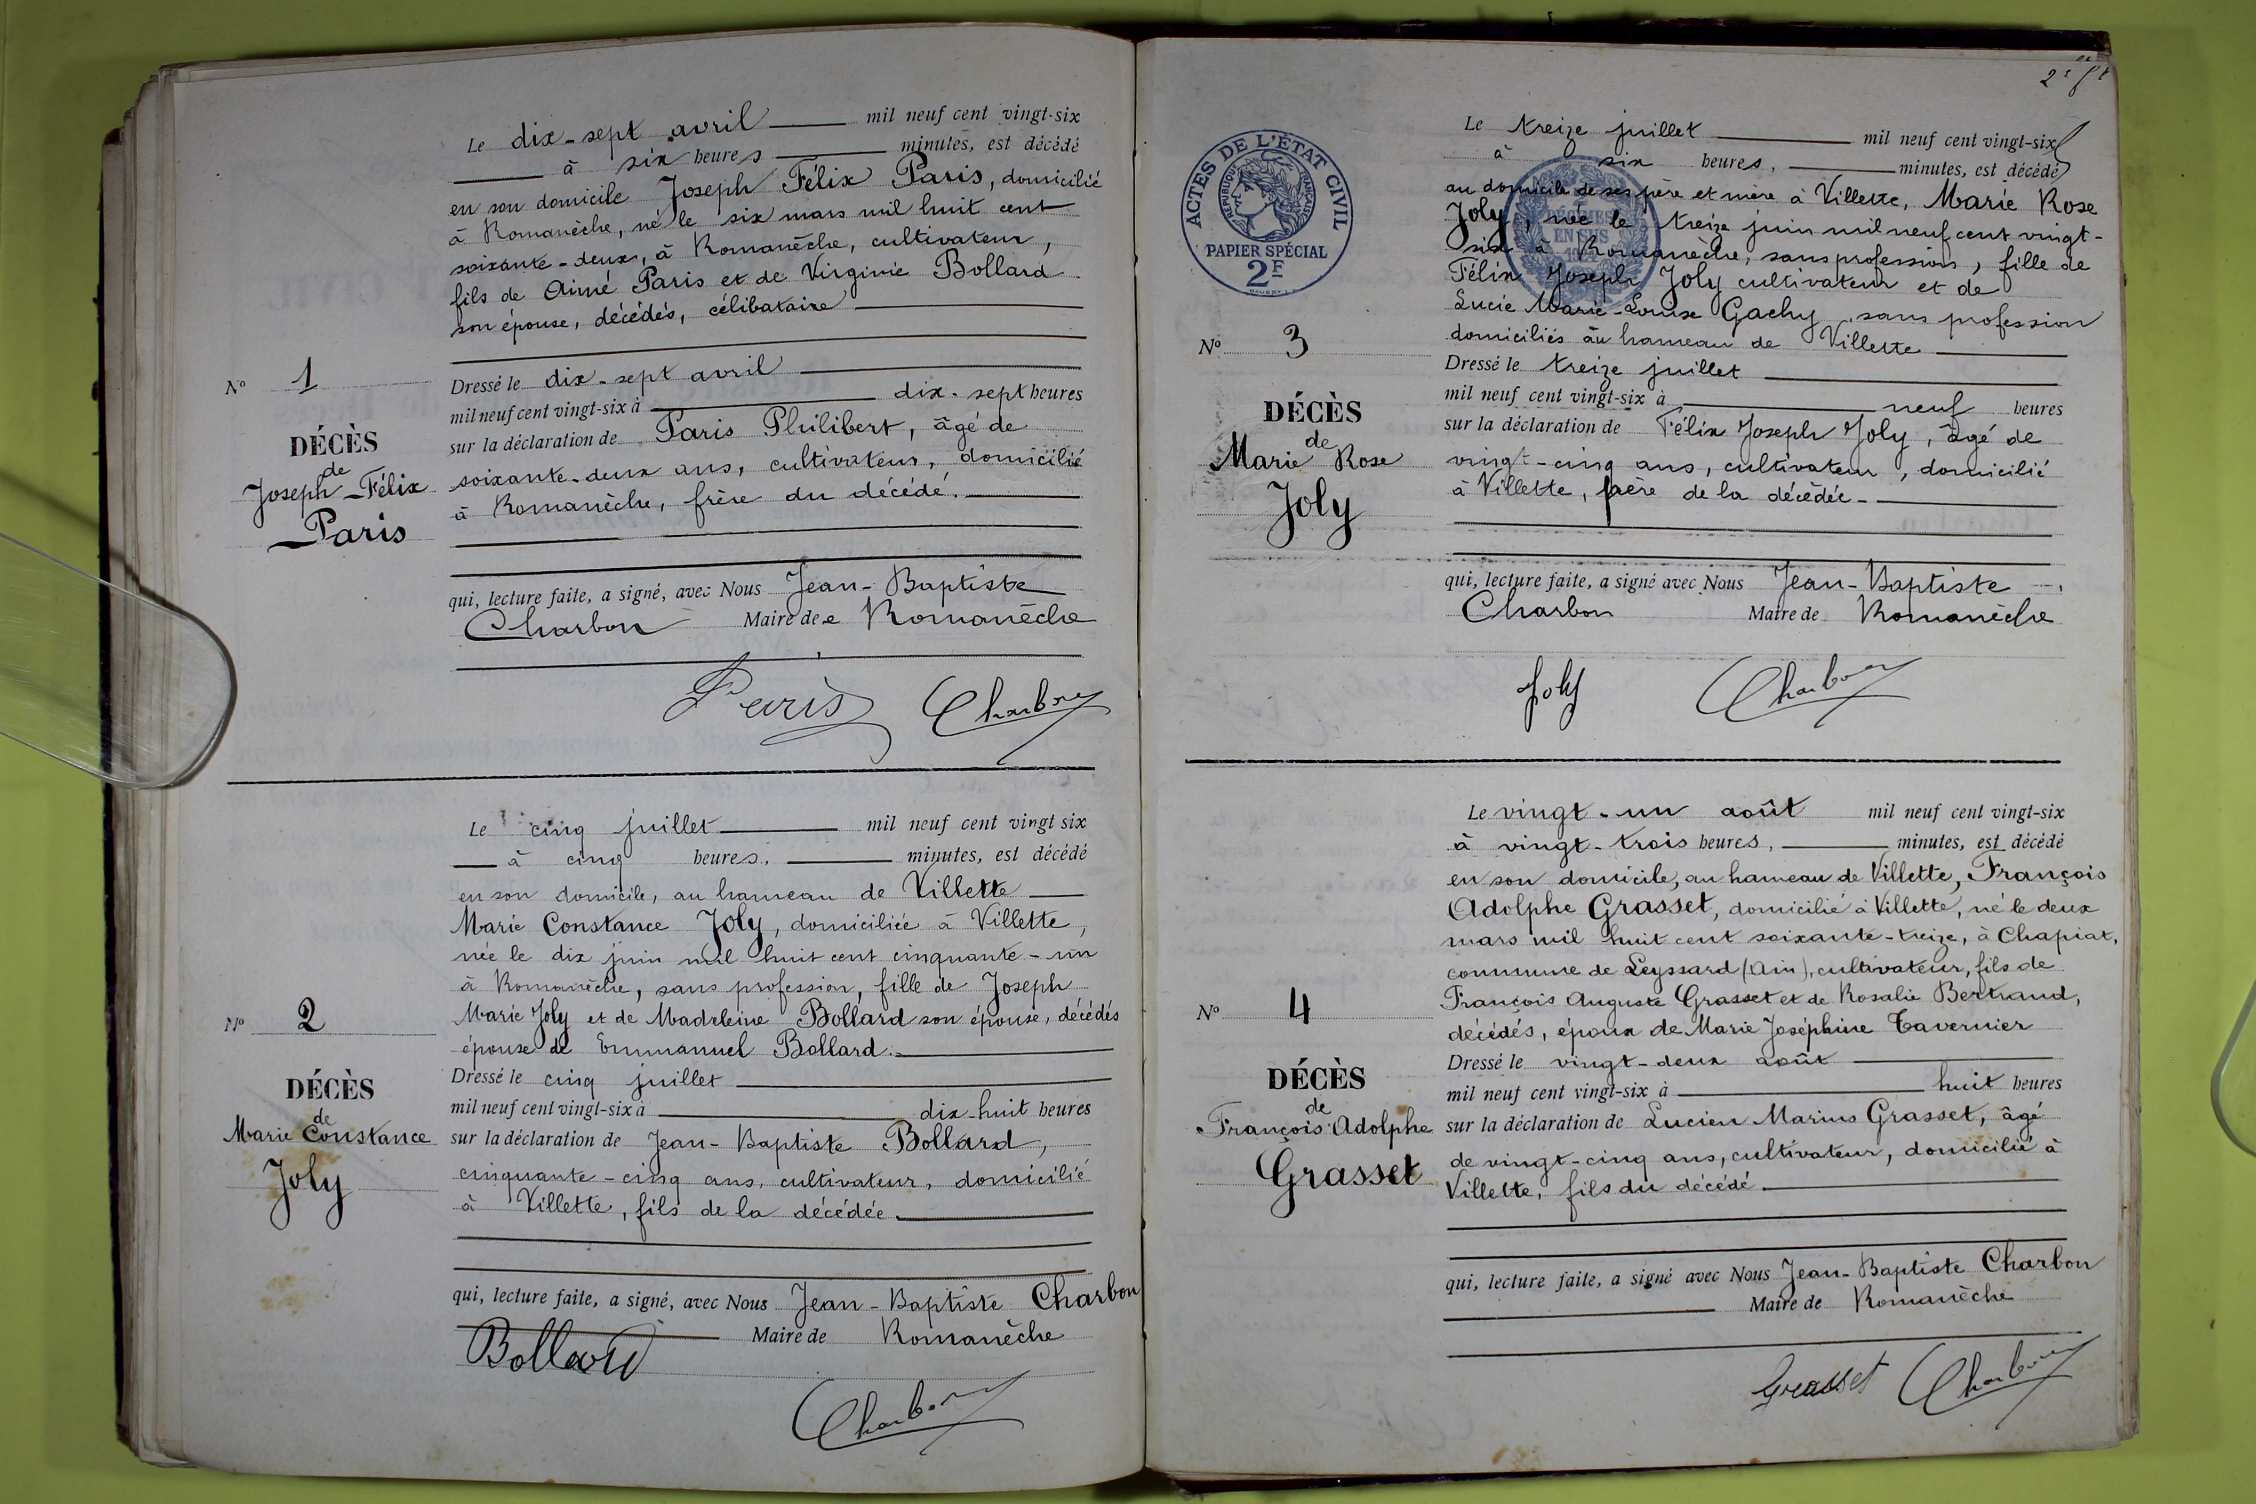 Le dix-sept avril mil neuf cent vingt-six
à six heures minutes, est décédé
en son domicile Joseph Félix Paris, domicilié
à Romanèche, né le six mars mil huit cent
soixante-deux, à Romanèche, cultivateur,
fils de Aimé Paris et de Virginie Bollard
son épouse, décédés, célibataire
N° 1
DÉCÈS
de
Joseph-Félix
Paris
Dressé le dix-sept avril
mil neuf cent vingt-six à dix-sept heures
sur la déclaration de Paris Philibert, âgé de
soixante-deux ans, cultivateur, domicilié
à Romanèche, frère du décédé.
qui, lecture faite, a signé, avec Nous Jean-Baptiste
Charbon Maire de Romanèche
Paris Charbon
Le cinq juillet mil neuf cent vingt six
à cinq heures, minutes, est décédé
en son domicile, au hameau de Villette
Marie Constance Joly, domiciliée à Villette,
née le dix juin mil huit cent cinquante-un
à Romanèche, sans profession, fille de Joseph
Marie Joly et de Madeleine Bollard son épouse, décédés
épouse de Emmanuel Bollard.
N° 2
DÉCÈS
de
Marie Constance
Joly
Dressé le cinq juillet
mil neuf cent vingt-six à dix-huit heures
sur la déclaration de Jean-Baptiste Bollard,
cinquante-cinq ans, cultivateur, domicilié
à Villette, fils de la décédée.
qui, lecture faite, a signé, avec Nous Jean-Baptiste Charbon
Maire de Romanèche
Bollard
Charbon
ACTES DE L'ÉTAT CIVIL
RÉPUBLIQUE FRANÇAISE
PAPIER SPÉCIAL
2F
Le treize juillet mil neuf cent vingt-six
à six heures, minutes, est décédé
au domicile de ses père et mère à Villette, Marie Rose
Joly, née le treize juin mil neuf cent vingt-
six à Romanèche, sans profession, fille de
Félix Joseph Joly cultivateur et de
Lucie Marie-Louise Gachy, sans profession
domiciliés au hameau de Villette
N° 3
DÉCÈS
de
Marie Rose
Joly
Dressé le treize juillet
mil neuf cent vingt-six à neuf heures
sur la déclaration de Félix Joseph Joly, âgé de
vingt-cinq ans, cultivateur, domicilié
à Villette, père de la décédée-
qui, lecture faite, a signé avec Nous Jean-Baptiste
Charbon Maire de Romanèche
Joly Charbon
Le vingt-un août mil neuf cent vingt-six
à vingt-trois heures, minutes, est décédé
en son domicile, au hameau de Villette, François
Adolphe Grasset, domicilié à Villette, né le deux
mars mil huit cent soixante-treize, à Chapiat,
commune de Leyssard (Ain), cultivateur, fils de
François Auguste Grasset et de Rosalie Bertrand,
décédés, époux de Marie Joséphine Tavernier
N° 4
DÉCÈS
de
François Adolphe
Grasset
Dressé le vingt-deux août
mil neuf cent vingt-six à huit heures
sur la déclaration de Lucien Marius Grasset, âgé
de vingt-cinq ans, cultivateur, domicilié à
Villette, fils du décédé
qui, lecture faite, a signé avec Nous Jean-Baptiste Charbon
Maire de Romanèche
Grasset Charbon